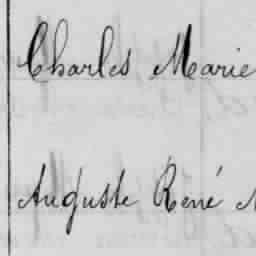 Charles Marie
Auguste René